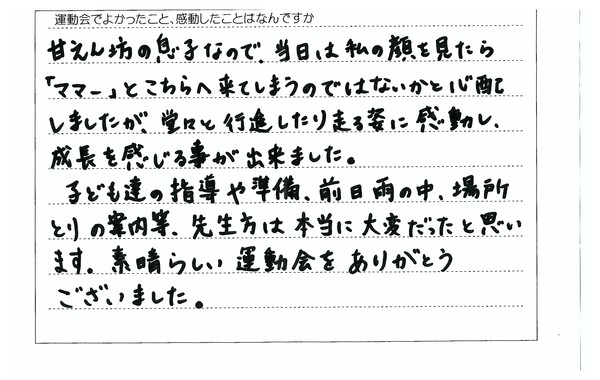 運動会でよかったこと、感動したことはなんですか
甘えん坊の息子なので、当日は私の顔を見たら
「ママー」とこちらへ来てしまうのではないかと心配
しましたが、堂々と行進したり走る姿に感動し、
成長を感じる事が出来ました。
子ども達の指導や準備、前日雨の中、場所
とりの案内等、先生方は本当に大変だったと思い
ます。素晴らしい運動会をありがとう
ございました。